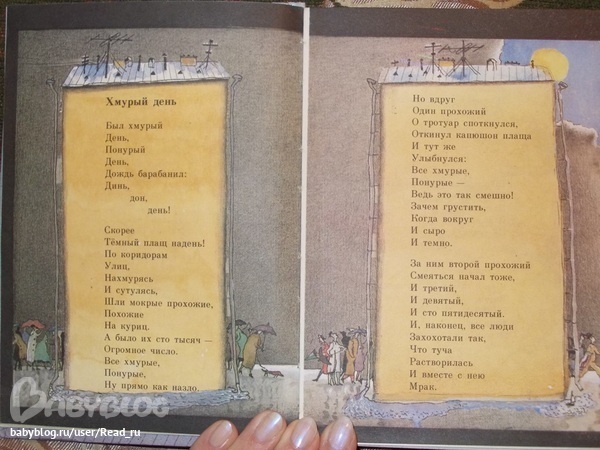 Хмурый день
Был хмурый
День,
Понурый
День,
Дождь барабанил:
Динь,
дон,
день!
Скорее
Тёмный плащ надень!
По коридорам
Улиц,
Нахмурясь
И сутулясь,
Шли мокрые прохожие,
Похожие
На куриц.
А было их сто тысяч —
Огромное число.
Все хмурые,
Понурые,
Ну прямо как назло.
Но вдруг
Один прохожий
О тротуар споткнулся,
Откинул капюшон плаща
И тут же
Улыбнулся:
Все хмурые,
Понурые —
Ведь это так смешно!
Зачем грустить,
Когда вокруг
И сыро
И темно.
За ним второй прохожий
Смеяться начал тоже,
И третий,
И девятый,
И сто пятидесятый.
И, наконец, все люди
Захохотали так,
Что туча
Растворилась
И вместе с нею
Мрак.
BABYBLOG
babyblog.ru/user/Read_ru